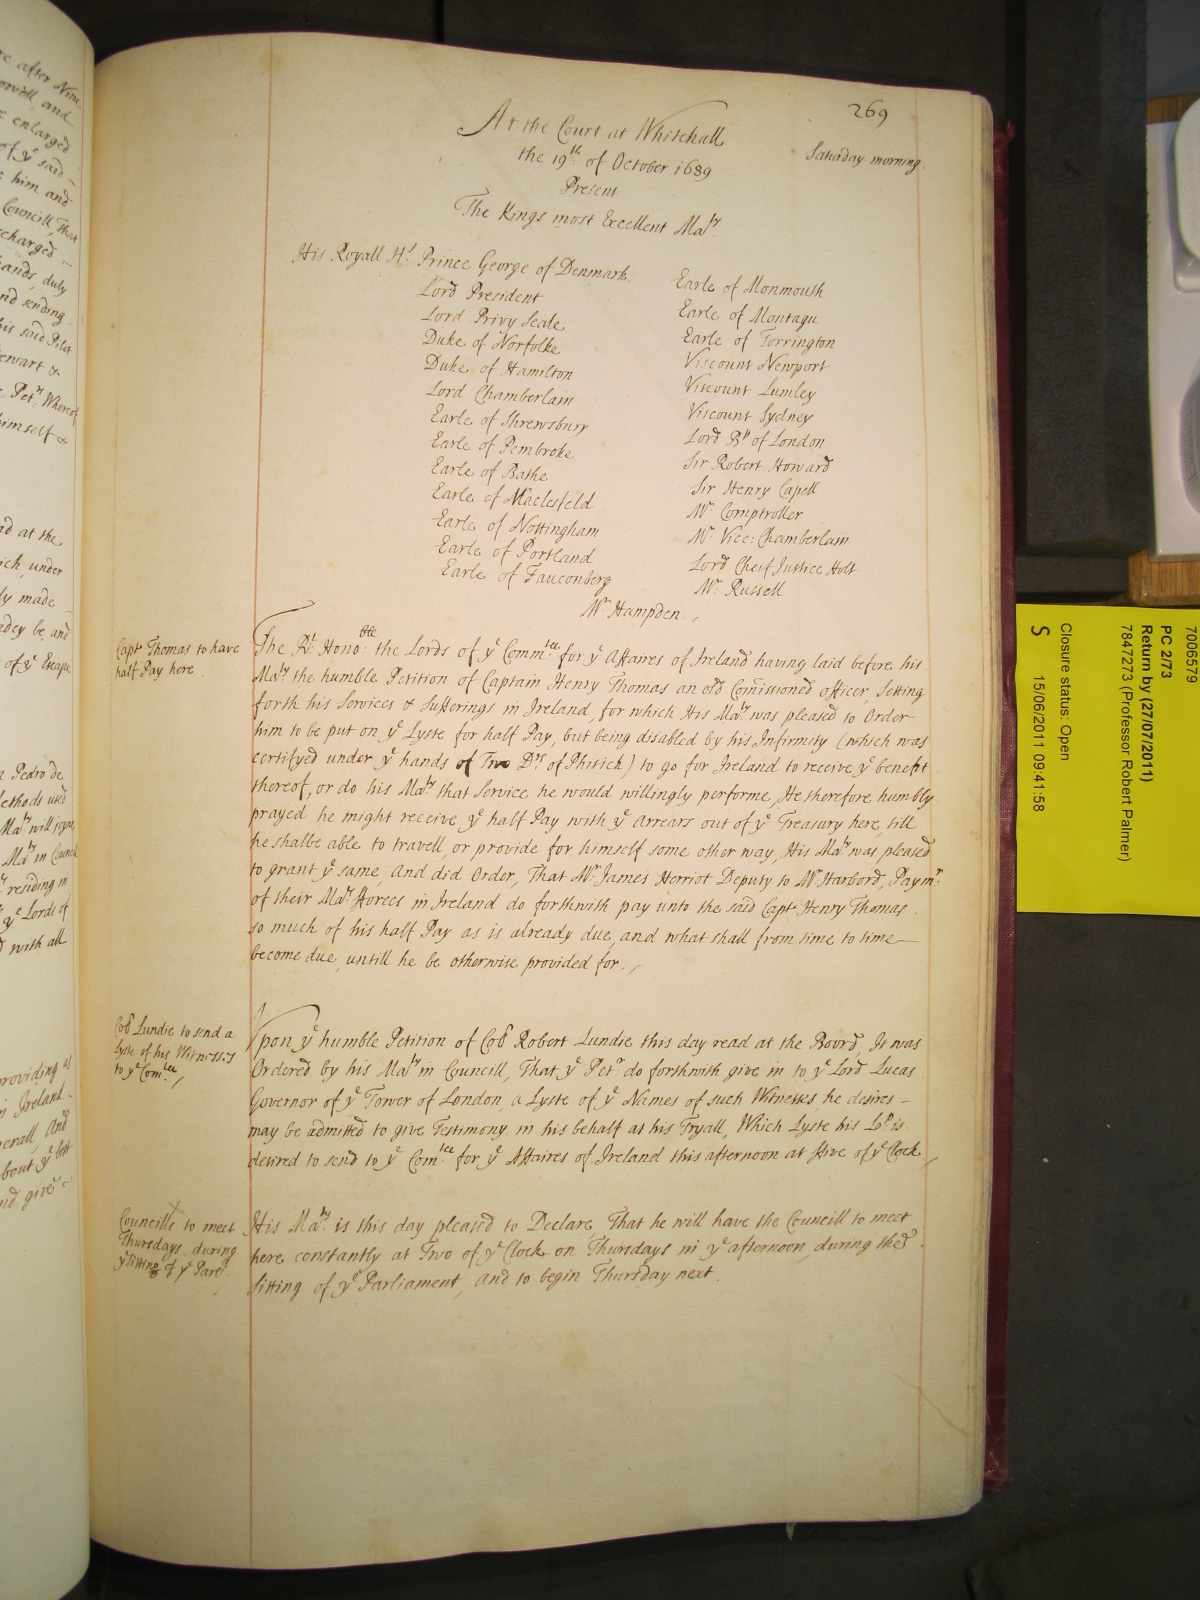 269
At the Court at Whitehall
Saturday morning.
the 19th of October 1689
Present
The Kings most Excellent Maty
His Royall Hs Prince George of Denmark
Lord President
Lord Privy Seale
Duke of Norfolke
Duke of Hamilton
Lord Chamberlain
Earle of Shrewsbury
Earle of Pembroke
Earle of Bathe
Earle of Maclesfeld
Earle of Nottingham
Earle of Portland
Earle of Fauconberg
Earle of Monmouth
Earle of Montagu
Earle of Torrington
Viscount Newport
Viscount Lumley
Viscount Sydney
Lord Bp of London
Sir Robert Howard
Sir Henry Capell
Mr Comptroller
Mr Vice: Chamberlain
Lord Cheif Justice Holt
Mr Russell
Mr Hampden
Capt Thomas to have
half Pay here
The Rt Honoble the Lords of ye Commtee for ye Affaires of Ireland having laid before his
Maty the humble Petition of Captain Henry Thomas an old Comissioned officer, Setting
forth his Services & Sufferings in Ireland, for which His Maty was pleased to Order
him to be put on ye Lyste for half Pay, but being disabled by his Infirmity (which was
certifyed under ye hands of Two Drs of Phisick) to go for Ireland to receive ye benefit
thereof, or do his Maty that Service he would willingly performe, He therefore humbly
prayed he might receive ye half Pay with ye Arrears out of ye Treasury here, till
he shalbe able to travell, or provide for himself some other way, His Maty was pleased
to grant ye same, And did Order, That Mr James Herriot Deputy to Mr Harbord, Paymr
of their Mats fforces in Ireland do forthwith pay unto the said Capt Henry Thomas
so much of his half Pay as is already due, and what shall from time to time
become due, untill he be otherwise provided for.
Coll Lundie to send a
Lyste of his Witnesses
to ye Comtee
Upon ye humble Petition of Coll Robert Lundie this day read at the Board, It was
Ordered by his Maty in Councill, That ye Petr do forthwith give in to ye Lord Lucas
Governor of ye Tower of London, a Lyste of ye Names of such Witnesses, he desires
may be admitted to give Testimony in his behalf at his Tryall, Which Lyste his Lop is
desired to send to ye Comtee for ye Affaires of Ireland this afternoon at ffive of ye Clock
Councills to meet
Thursdays during
ye sitting of ye Parlt
His Maty is this day pleased to Declare That he will have the Councill to meet
here constantly at Two of ye Clock on Thursdays in ye afternoon, during the
sitting of ye Parliament, and to begin Thursday next.
7006579
PC 2/73
Return by (27/07/2011)
7847273 (Professor Robert Palmer)
Closure status: Open
15/06/2011 09:41:58
S